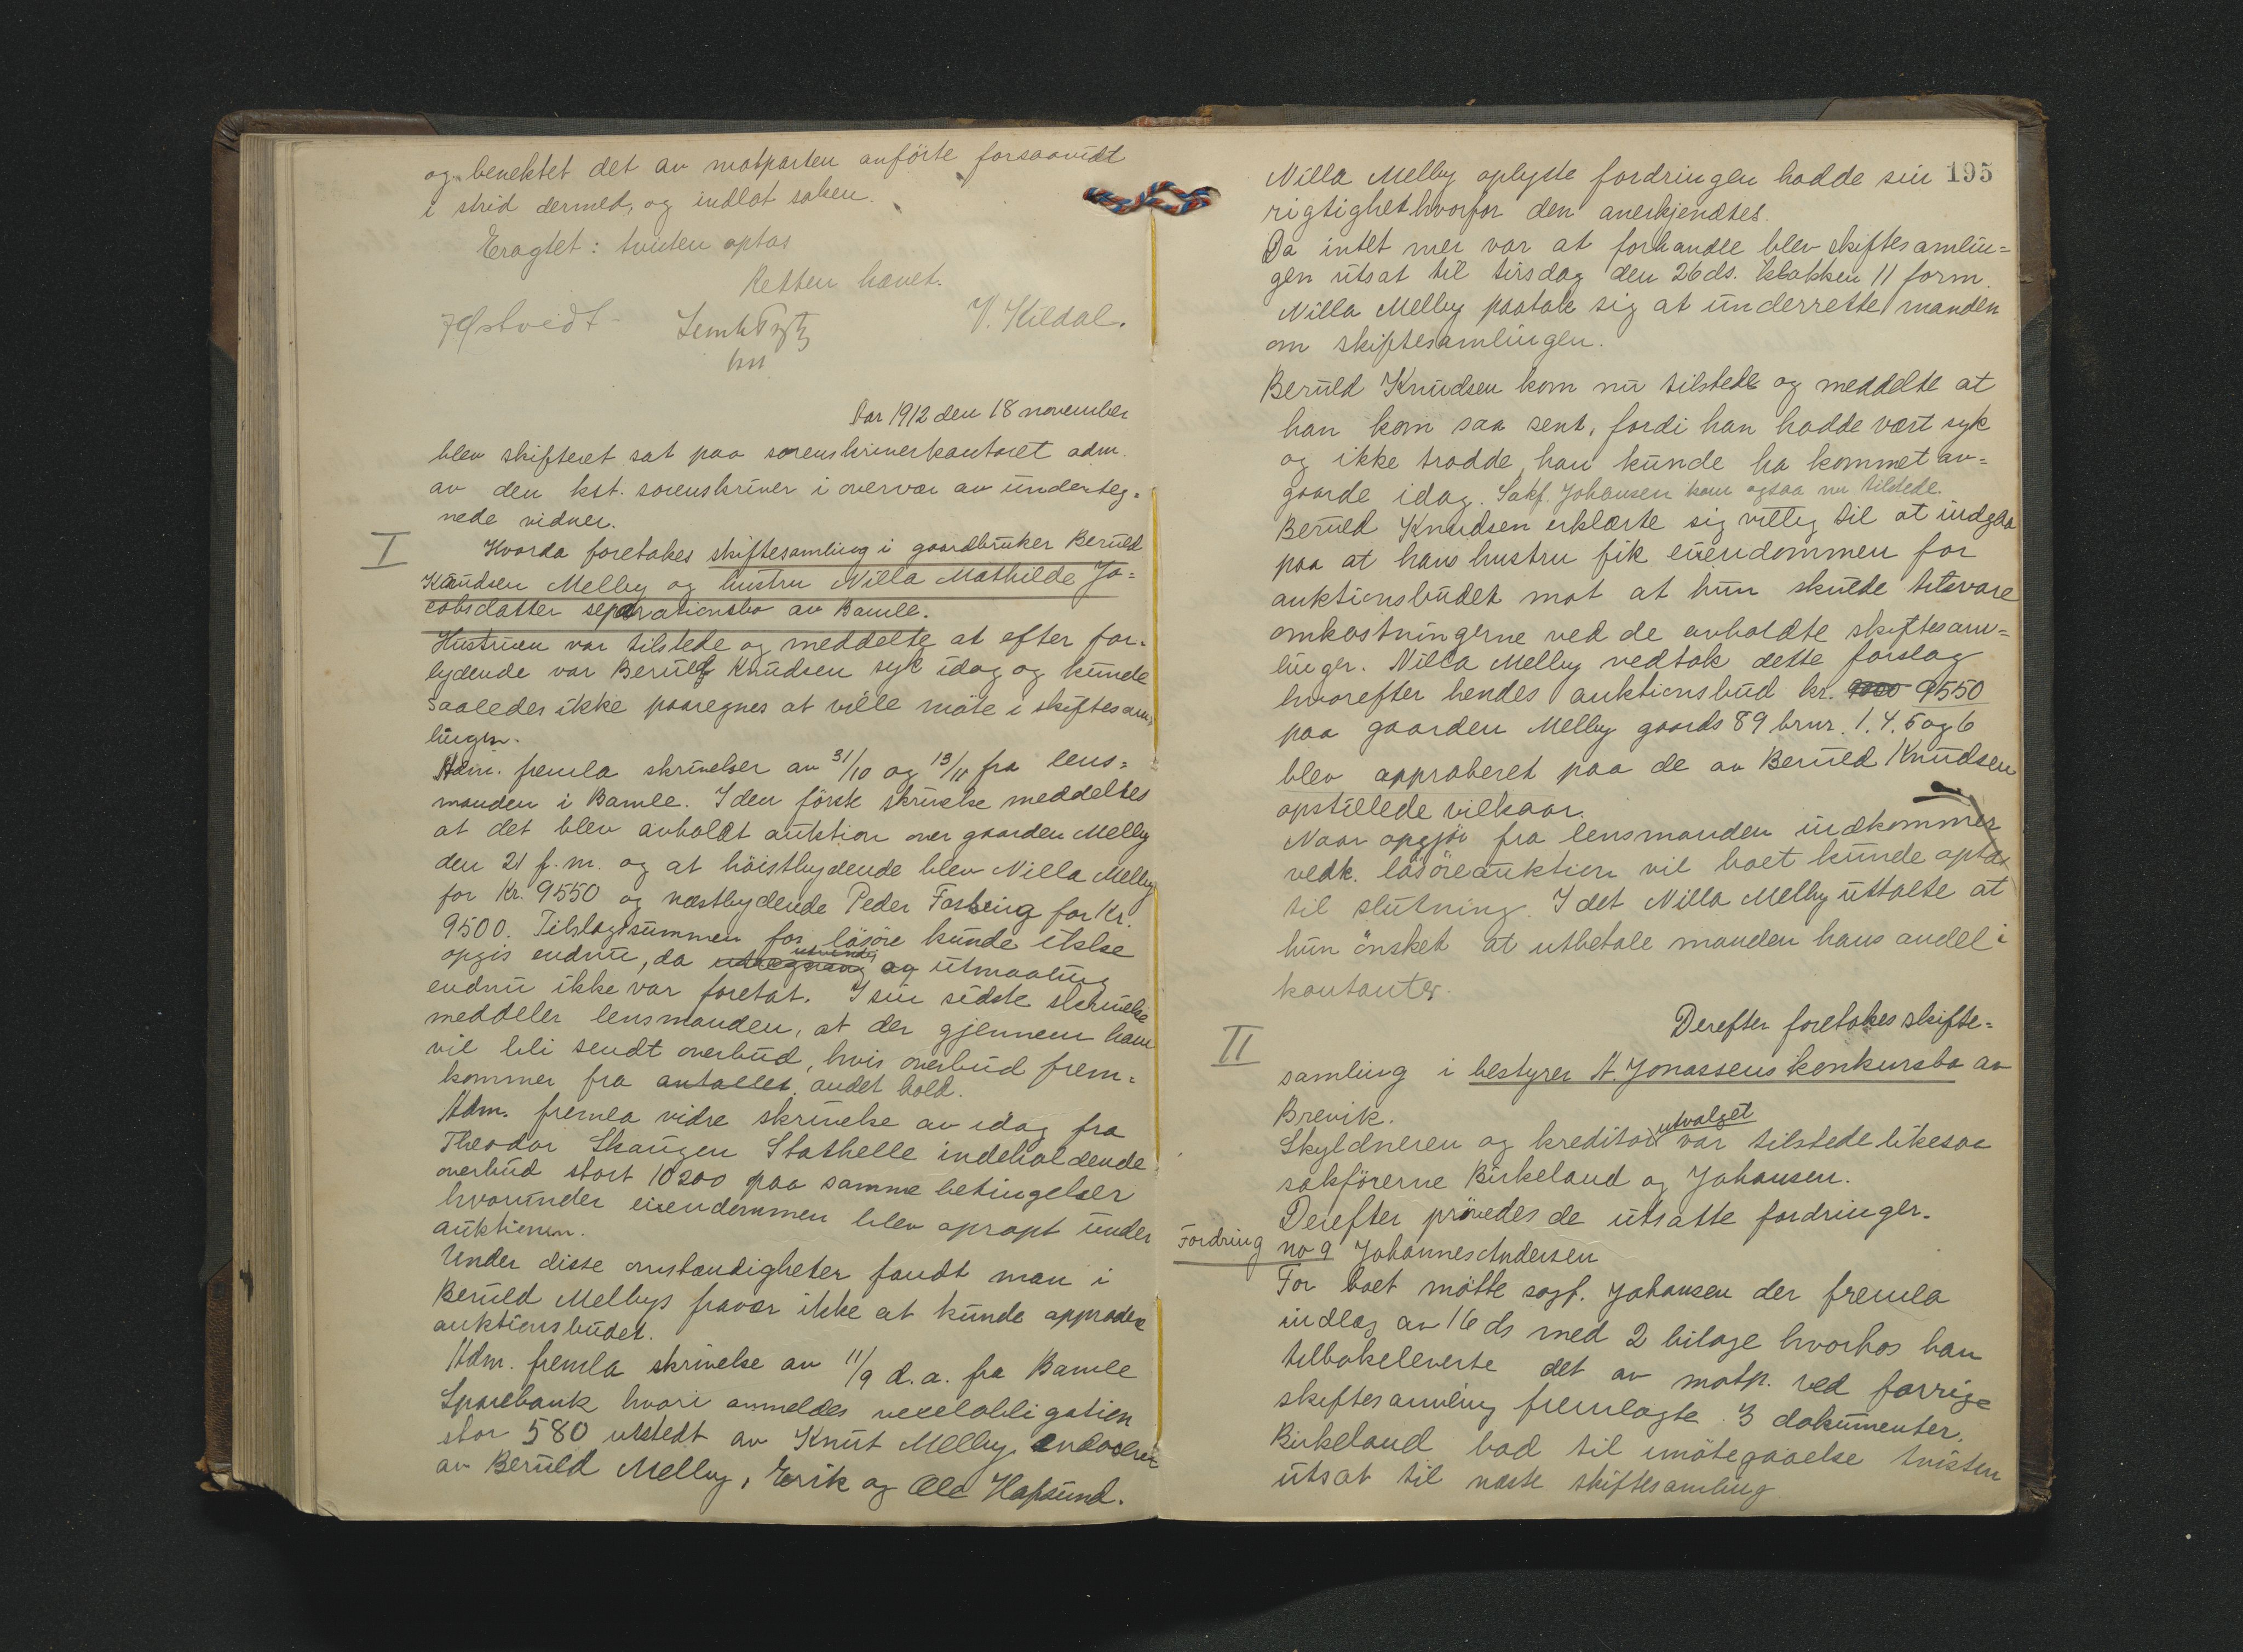 og benektet det av motparten anförte forsaavidt
i strid dermed, og indlot saken.
Eragtet: tvisten optas
Retten hævet.
V. Kildal.
Aar 1912 den 18 november
blev skifteret sat paa sorenskriverkontoret adm.
av den kst. sorenskriver i overvær av underteg-
nede vidner.
I
Hvorda foretokes skiftesamling i gaardbruker Beruld
Knudsen Melby og hustru Nilla Mathilde Ja=
cobsdatter separationsbo av Bamle.
Hustruen var tilstede og meddelte at efter for-
lydende var Beruld Knudsen syk idag og kunde
saaledes ikke paaregnes at ville möte i skiftesam-
lingen.
Adm. fremla skrivelser av 31/10 og 13/11 fra lens=
manden i Bamle. I den förste skrivelse meddeltes
at det blev avholdt auktion over gaarden Melby
den 21 f.m. og at höistbydende blev Nilla Melby
for Kr. 9550 og næstbydende Peder for Kr.
9500. Tilslagssummen for lösöre kunde ikke
opgis endnu, da utmaaling
endnu ikke var foretat. I sin sidste skrivelse
meddeler lensmanden, at der gjennem ham
vil bli sendt overbud, hvis overbud frem=
kommer fra antallet andet hold.
Adm. fremla vidre skrivelse av idag fra
Theodor Skaugen Stathelle indeholdende
overbud stort 10200 paa samme betingelser
hvorunder eiendommen blev opropt under
auktionen.
Under disse omstændigheter fandt man i
Beruld Melbys fravær ikke at kunde approbere
auktionsbudet.
Adm. fremla skrivelse av 11/9 d.a. fra Bamle
Sparebank hvori anmeldes vexelobligation
stor 580 utstedt av Knut Melby endossert
av Beruld Melby, Erik og Ole Hafsund.
195
Nilla Melby oplyste fordringen hadde sin
rigtighet hvorfor den anerkjendtes.
Da intet mer var at forhandle blev skiftesamlin=
gen utsat til tirsdag den 26 ds. klokken 11 form.
Nilla Melby paatok sig at underrette manden
om skiftesamlingen.
Beruld Knudsen kom nu tilstede og meddelte at
han kom saa sent, fordi han hadde vært syk
og ikke trodde han kunde ha kommet av=
gaarde idag. Sakf. Johansen kom ogsaa nu tilstede.
Beruld Knudsen erklærte sig villig til at indgaa
paa at hans hustru fik eiendommen for
auktionsbudet mot at hun skulde tilsvare
omkostningerne ved de avholdte skiftesam=
linger. Nilla Melby vedtok dette forslag
hvorefter hendes auktionsbud kr. 9550
paa gaarden Melby gaards 89 brnr. 1. 4. 5 og 6
blev approberet paa de av Beruld Knudsen
opstillede vilkaar.
Naar opgjör fra lensmanden indkommer
vedk. lösöreauktion vil boet kunde optas
til slutning. Idet Nilla Melby uttalte at
hun önsket at utbetale manden hans andel i
kontanter.
Derefter foretokes skifte=
II
samling i bestyrer A. Jonassens konkursbo av
Brevik.
Skyldneren og kreditorutvalget var tilstede likesaa
sakförerne Birkeland og Johansen.
Derefter prövedes de utsatte fordringer.
Fordring no 9 Johannes Andersen
For boet mötte sagf. Johansen der fremla
indlæg av 16 ds med 2 bilage hvorhos han
tilbakeleverte det av motp. ved forrige
skiftesamling fremlagte 3 dokumenter.
Birkeland bad til imötegaaelse tvisten
utsat til næste skiftesamling